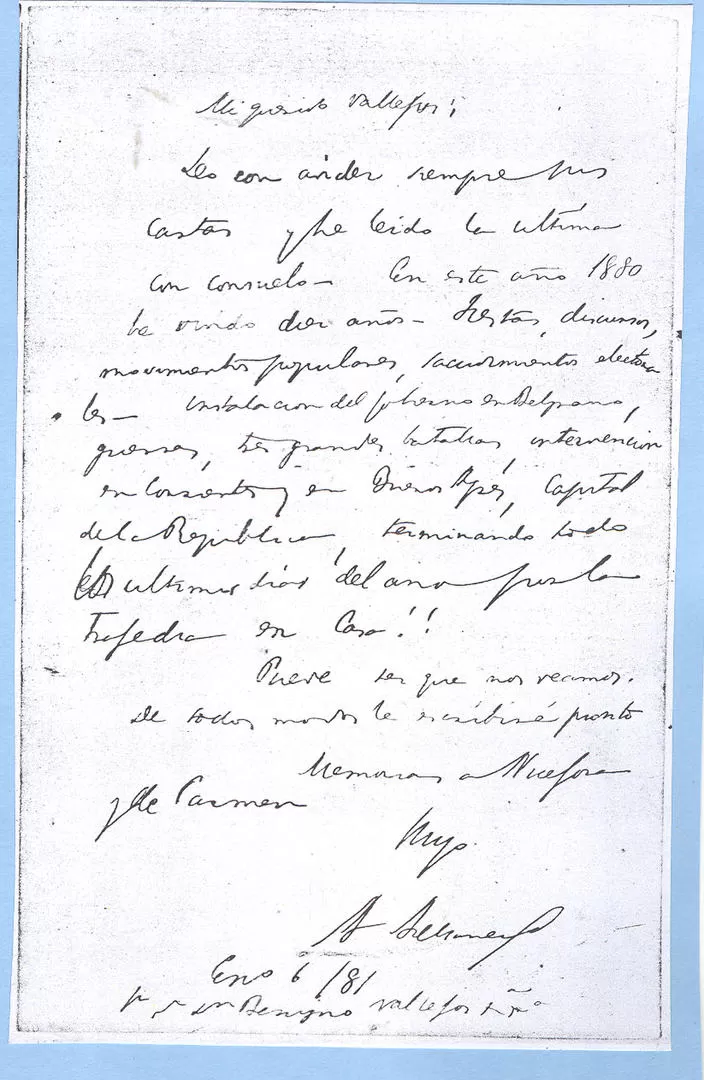 Mi querido Vallejos;
Leo con anider siempre sus
cartas y he leido la ultima
con consuelo— En este año 1880
he vivido diez años— Fiestas, discursos,
movimientos populares, sacudimientos electora
les— instalacion del gobierno en Belgrano,
guerras, tres grandes batallas, intervencion
en Corrientes y en Buenos Ayres, Capital
de la Republica, terminando todo
los ultimos dias del año por la
trajedia en Casa!!
Puede ser que nos veamos.
De todos modos le escribiré pronto
Memorias a Nicefora
y de Carmen
Suyo
N Avellaneda
Eno 6/81
Sr Dn Benigno Vallejos